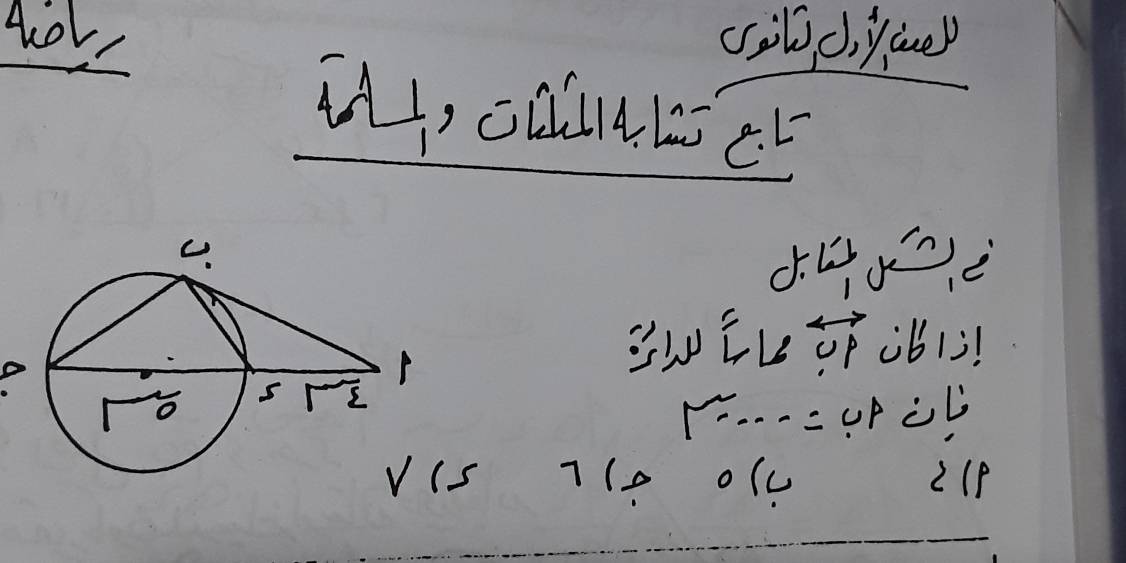 للصف الأول الثانوى
رياضة
تابع تشابه المثلثات والمسائمة
فى الشكل المقابل
إذا كان أب مماساً للدائرة
فإن أب = ..... سم
أ) ٤ ب) ٥ ج) ٦ د) ٧
ب
أ
ج
د
٤ سم
٥ سم